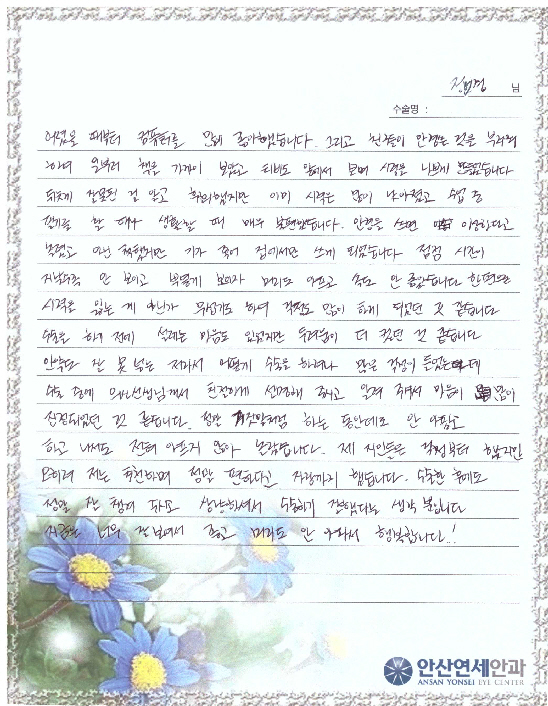 님
수술명 :
어렸을 때부터 컴퓨터를 많이 좋아했습니다. 그리고 친구들이 안경쓴 것을 부러워
하여 일부러 책을 가까이 보았고 티비도 앞에서 보며 시력을 나쁘게 만들었습니다
뒤늦게 잘못된 걸 알고 후회했지만 이미 시력은 많이 나빠졌고 수업 중
필기를 할 때나 생활할 때 매우 불편했습니다. 안경을 쓰면 이상하다고
놀렸고 아닌 척했지만 기가 죽어 집에서만 쓰게 되었습니다 점점 시간이
지날수록 안 보이고 뿌옇게 보이자 머리도 아프고 속도 안 좋았습니다 한편으론
시력을 잃는 게 아닌가 무섭기도 하여 걱정도 많이 하게 되었던 것 같습니다
수술을 하기 전에 설레는 마음도 있었지만 두려움이 더 컸던 것 같습니다
안약도 잘 못 넣는 저라서 어떻게 수술을 하려나 많은 걱정이 들었는데
수술 전에 의사선생님께서 친절하게 설명해 주시고 알려 주셔서 마음이 많이
진정되었던 것 같습니다. 정말 거짓말처럼 하는 동안에도 안 아팠고
하고 나서도 전혀 아프지 않아 놀랐습니다. 제 지인들은 걱정부터 했지만
오히려 저는 추천하며 정말 편하다고 자랑까지 했습니다. 수술한 후에도
정말 잘 챙겨 주고 상냥하셔서 수술하기 잘했다는 생각 뿐입니다
지금은 너무 잘 보여서 좋고 머리도 안 아파서 행복합니다!
안산연세안과
ANSAN YONSEI EYE CENTER